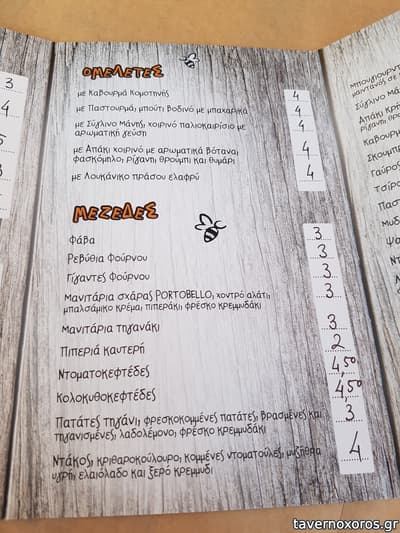 ΟΜΕΛΕΤΕΣ
με Καβουρμά Κομοτηνής 4
με Παστουρμά, μπούτι βοδινό με μπαχαρικά 4
με Σύγλινο Μάνης, χοιρινό παλιοκαιρίσιο με
αρωματική γεύση 4
με Απάκι χοιρινό με αρωματικά βότανα,
φασκόμηλο, ρίγανη, θρούμπι και θυμάρι 4
με Λουκάνικο πράσου ελαφρύ 4
ΜΕΖΕΔΕΣ
Φάβα 3
Ρεβύθια Φούρνου 3
Γίγαντες Φούρνου 3
Μανιτάρια σχάρας PORTOBELLO, χοντρό αλάτι,
μπαλσάμικο κρέμα, πιπεράκι, φρέσκο κρεμμυδάκι 3
Μανιτάρια τηγανάκι 3
Πιπεριά καυτερή 2
Ντοματοκεφτέδες 4,50
Κολοκυθοκεφτέδες 4,50
Πατάτες τηγάνι, φρεσκοκομμένες πατάτες, βρασμένες και
τηγανισμένες, λαδολέμονο, φρέσκο κρεμμυδάκι 3
Ντάκος, κριθαροκούλουρο, κομμένες ντοματούλες, μυζήθρα
υγρή, ελαιόλαδο και ξερό κρεμμύδι 4
3
4
Μπουγιουρντ
μαϊντανός σε
Σύγλινο Μά
Απάκι κρη
ρίγανη, θρ
Καβουρμ
Σκουμπ
Γαύρος
Τσίρο
Παστ
Μυδ
Ψα
Ν
tavernoxoros.gr